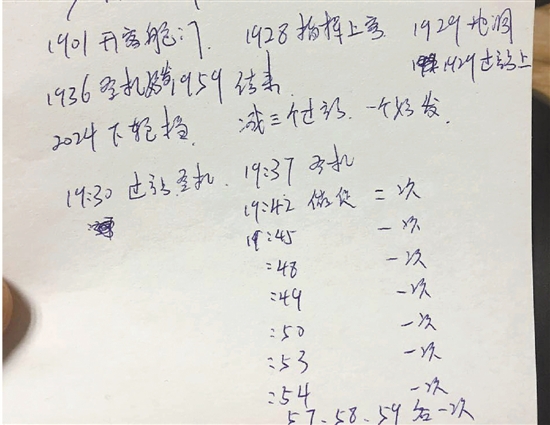 1901 开客舱门 1928 指挥上客 1929 地调
1929 过站上
1936 登机 1959 结束
2024 下轮挡 减三个过站 一个始发
19:30 过站登机 19:37 登机
19:42 催促 二次
19:45 一次
:48 一次
:49 一次
:50 一次
:53 一次
:54 一次
57、58、59 各一次